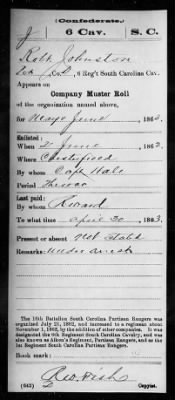 (Confederate.)
J 6 Cav. S. C.
Robt Johnston
, 6 Reg't South Carolina Cav.
Appears on
Company Muster Roll
of the organization named above,
for May & June, 1863
Enlisted:
When , 1862
Where
By whom Capt
Period
Last paid:
By whom
To what time April 30, 1863
Present or absent Not Stated
Remarks: Under arrest
The 16th Battalion South Carolina Partisan Rangers was
organized July 21, 1862, and increased to a regiment about
November 1, 1862, by the addition of other companies. It was
designated the 6th Regiment South Carolina Cavalry, and was
also known as Aiken's Regiment, Partisan Rangers, and as the
1st Regiment South Carolina Partisan Rangers.
Book mark:
(642) Copyist.